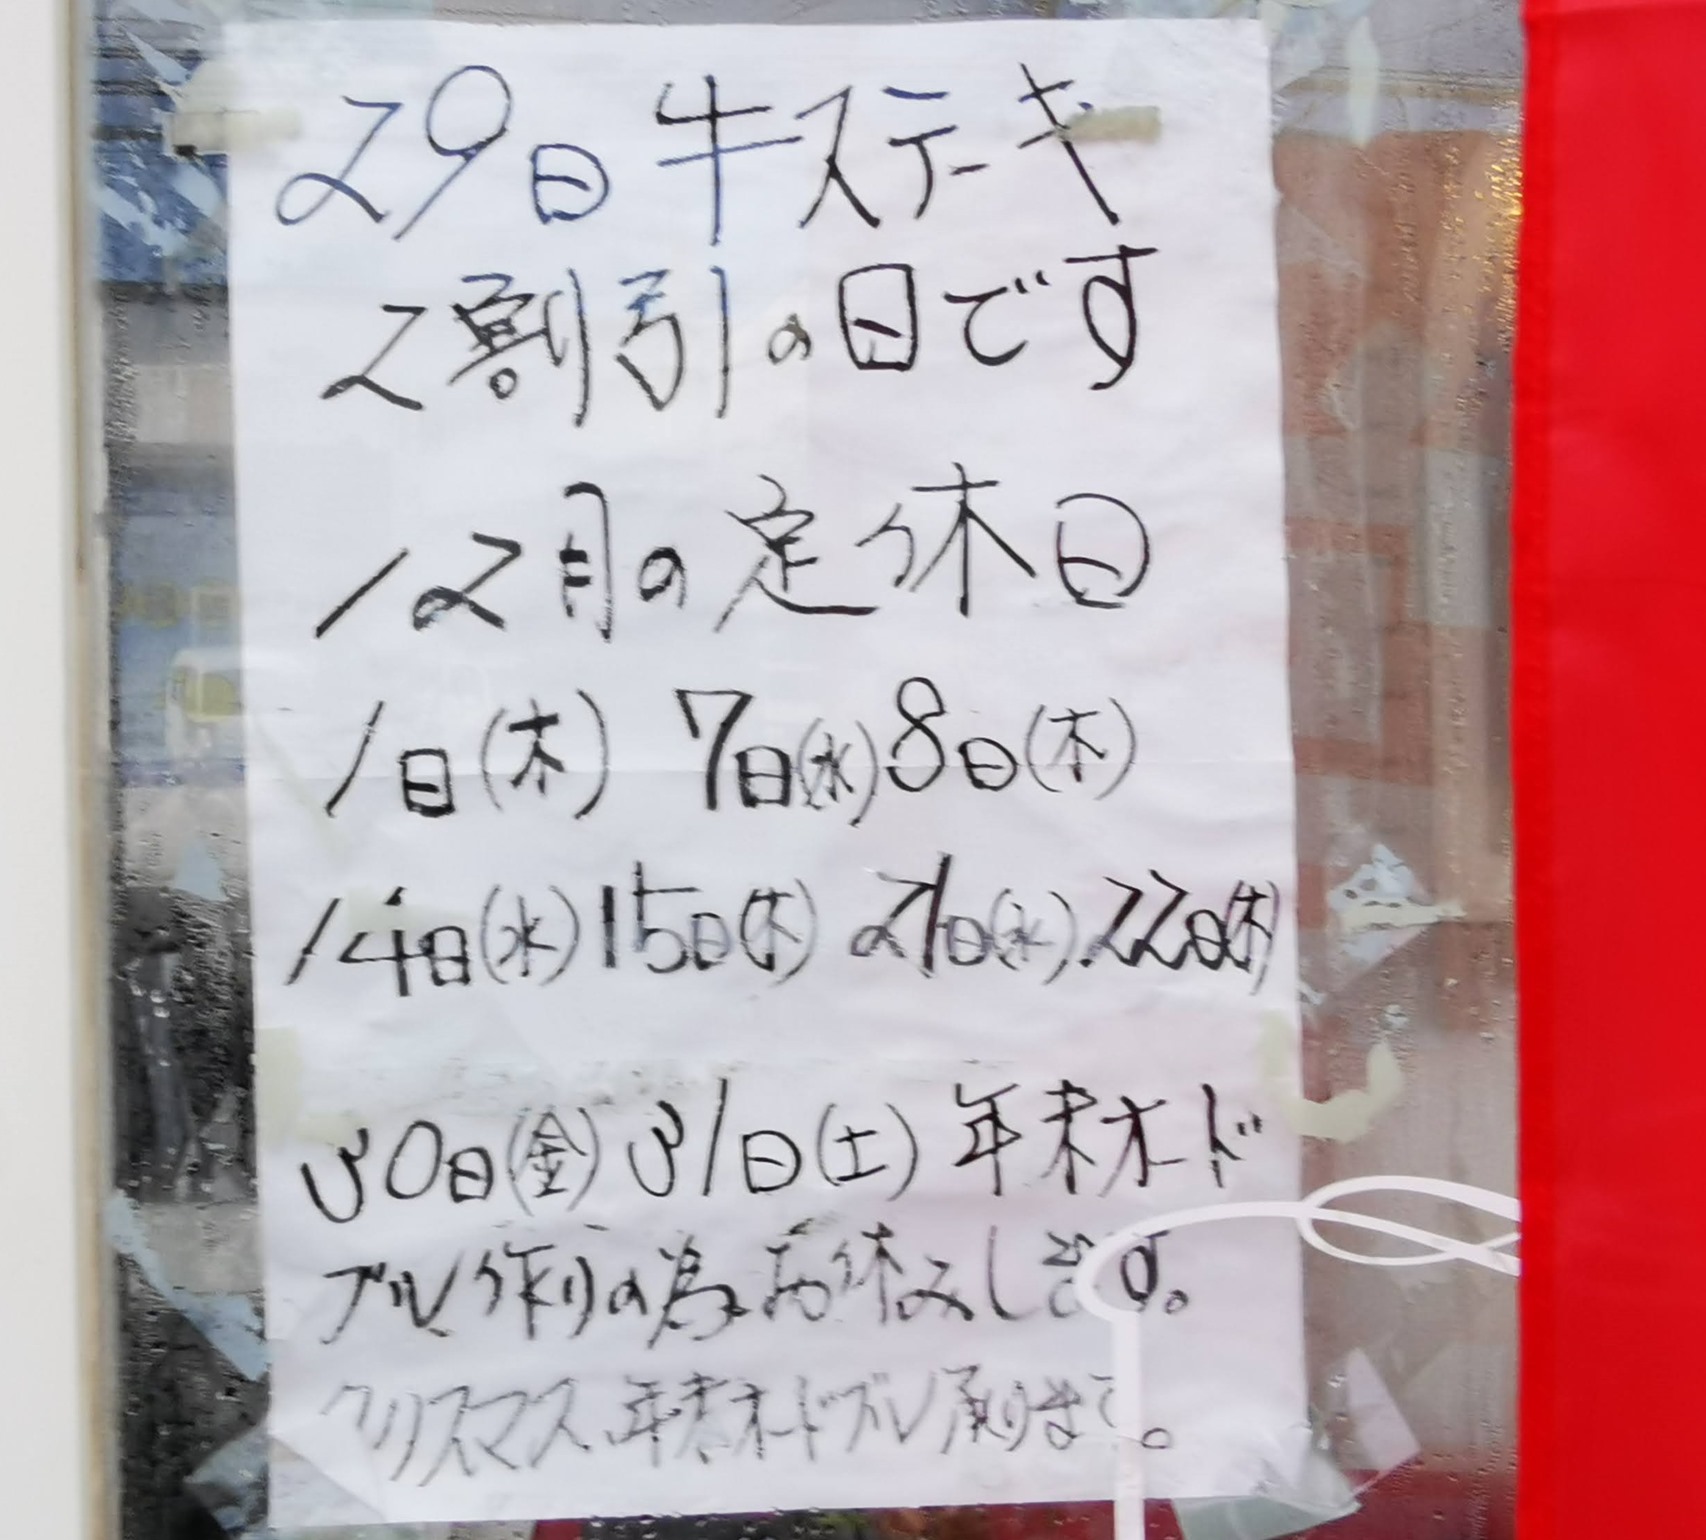 29日牛ステーキ
2割引の日です
12月の定休日
1日(木) 7日(水)8日(木)
14日(水)15日(木) 21日(水).22日(木)
30日(金)31日(土)年末オード
ブル作りの為お休みします。
クリスマス、年末オードブル承ります。